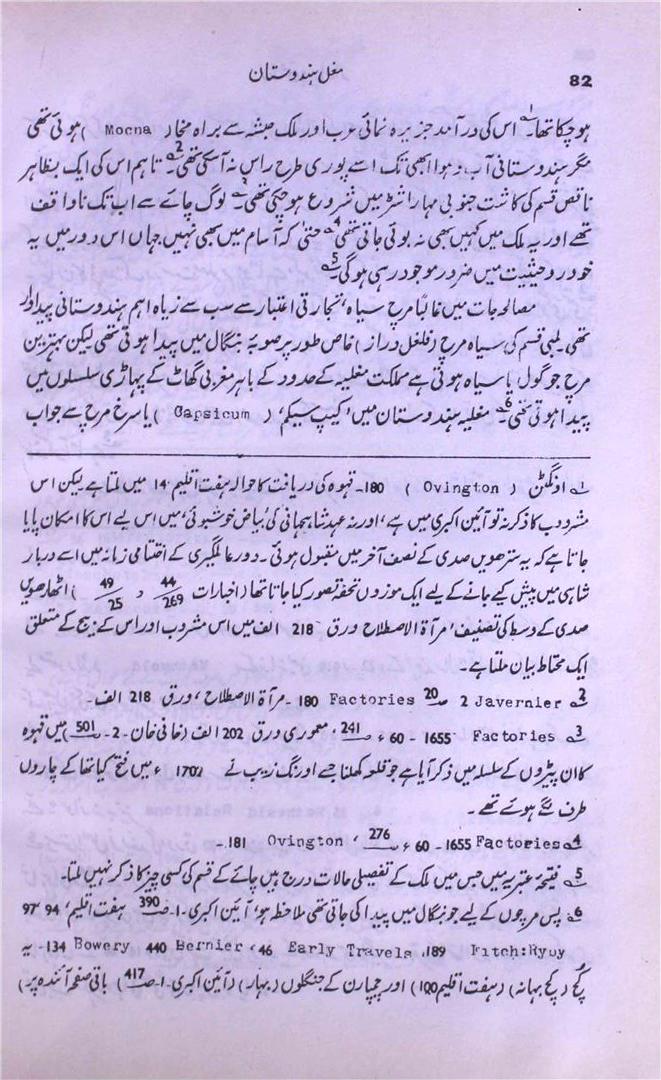 82
مغل ہندوستان
ہو چکا تھا۔1 اس کی درآمد جزیرہ نمائی عرب اور ملک حبشہ سے براہ مخا( Mocna ) ہوتی تھی
مگر ہندوستانی آب و ہوا ابھی تک اسے پوری طرح راس نہ آسکی تھی۔2 تاہم اس کی ایک بظاہر
ناقص قسم کی کاشت جنوبی مہاراشٹر میں شروع ہو چکی تھی۔3 لوگ چائے سے اب تک ناواقف
تھے اور یہ ملک میں کہیں بھی نہ بوئی جاتی تھی4 حتیٰ کہ آسام میں بھی نہیں جہاں اس دور میں یہ
خودرو حیثیت میں ضرور موجود رہی ہوگی۔5
مصالحہ جات میں غالباً مرچ سیاہ، تجارتی اعتبار سے سب سے زیادہ اہم ہندوستانی پیداوار
تھی۔ لمبی قسم کی سیاہ مرچ (فلفل دراز) خاص طور پر صوبہ بنگال میں پیدا ہوتی تھی لیکن بہترین
مرچ جو گول یا سیاہ ہوتی ہے مملکت مغلیہ کے حدود کے باہر مغربی گھاٹ کے پہاڑی سلسلوں میں
پیدا ہوتی تھی۔6 مغلیہ ہندوستان میں ‘کیپ سیکم’ ( Capsicum ) یا سرخ مرچ سے جواب
1 اونگٹن ( Ovington ) 180۔ قہوہ کی دریافت کا حوالہ ہفت اقلیم 14 میں ملتا ہے لیکن اس
مشروب کا ذکر نہ تو آئین اکبری میں ہے، اور نہ عہد شاہجہانی کی بیاض خوشبوئی، میں اس لیے اس کا امکان پایا
جاتا ہے کہ یہ سترھویں صدی کے نصف آخر میں مقبول ہوئی۔ دور عالمگیری کے اختتامی زمانہ میں اسے دربار
شاہی میں پیش کیے جانے کے لیے ایک موزوں تحفہ تصور کیا جاتا تھا (اخبارات 44/269 و 49/25 ) اٹھارھویں
صدی کے وسط کی تصنیف ‘مرآۃ الاصطلاح ورق 218 الف میں اس مشروب اور اس کے بیج کے متعلق
ایک محتاط بیان ملتا ہے۔
2 Javernier 2 صـ20 Factories 180 ۔مرآۃ الاصطلاح، ورق 218 الف۔
3 Factories 1655 - 60 ء صـ241 ، معموری ورق 202 الف (خافی خان۔2۔ صـ501) میں قہوہ
کا ان پیڑوں کے سلسلہ میں ذکر آیا ہے جو قلعہ کھلنا جسے اورنگ زیب نے 1702 ء میں فتح کیا تھا کے چاروں
طرف لگے ہوئے تھے۔
4 Factories 1655 - 60 ء صـ276 ، Ovington 181۔
5 فتیحہ عبریہ میں جس میں ملک کے تفصیلی حالات درج ہیں چائے کے قسم کی کسی چیز کا ذکر نہیں ملتا۔
6 پس مرچوں کے لیے جو بنگال میں پیدا کی جاتی تھی ملاحظہ ہو، آئین اکبری۔ا۔صـ390 ہفت اقلیم، 94، 97
Fitch:Ryby 189، Early Travels 46، Bernier 440 Bowery 134۔ یہ
کچ (کچ بہانہ) (ہفت اقلیم 100) اور چمپارن کے جنگلوں (بہار) (آئین اکبری۔ا۔صـ417) باقی صفحہ آئندہ پر)